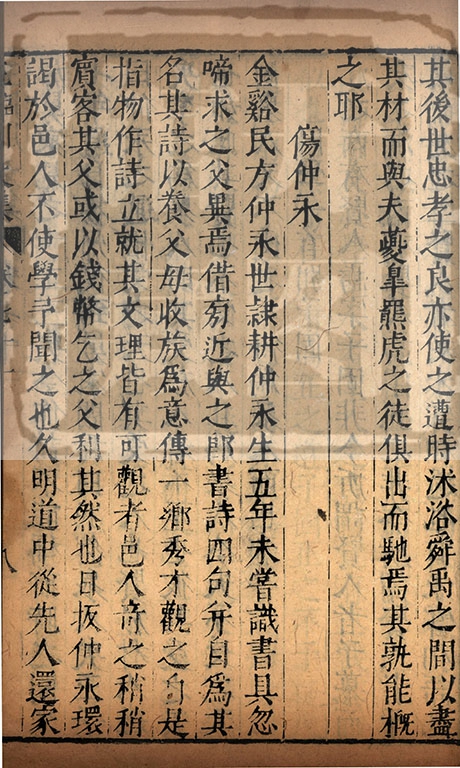 其後世忠孝之良亦使之遭時沐浴舜禹之間以盡
其材而與夫夔臯羆虎之徒俱出而馳焉其孰能槪
之耶
傷仲永
金谿民方仲永世隷耕仲永生五年未嘗識書具忽
啼求之父異焉借旁近與之卽書詩四句并自爲其
名其詩以養父母收族爲意傳一鄉秀才觀之自是
指物作詩立就其文理皆有可觀者邑人奇之稍稍
賓客其父或以錢幣乞之父利其然也日扳仲永環
謁於邑人不使學予聞之也久明道中從先人還家